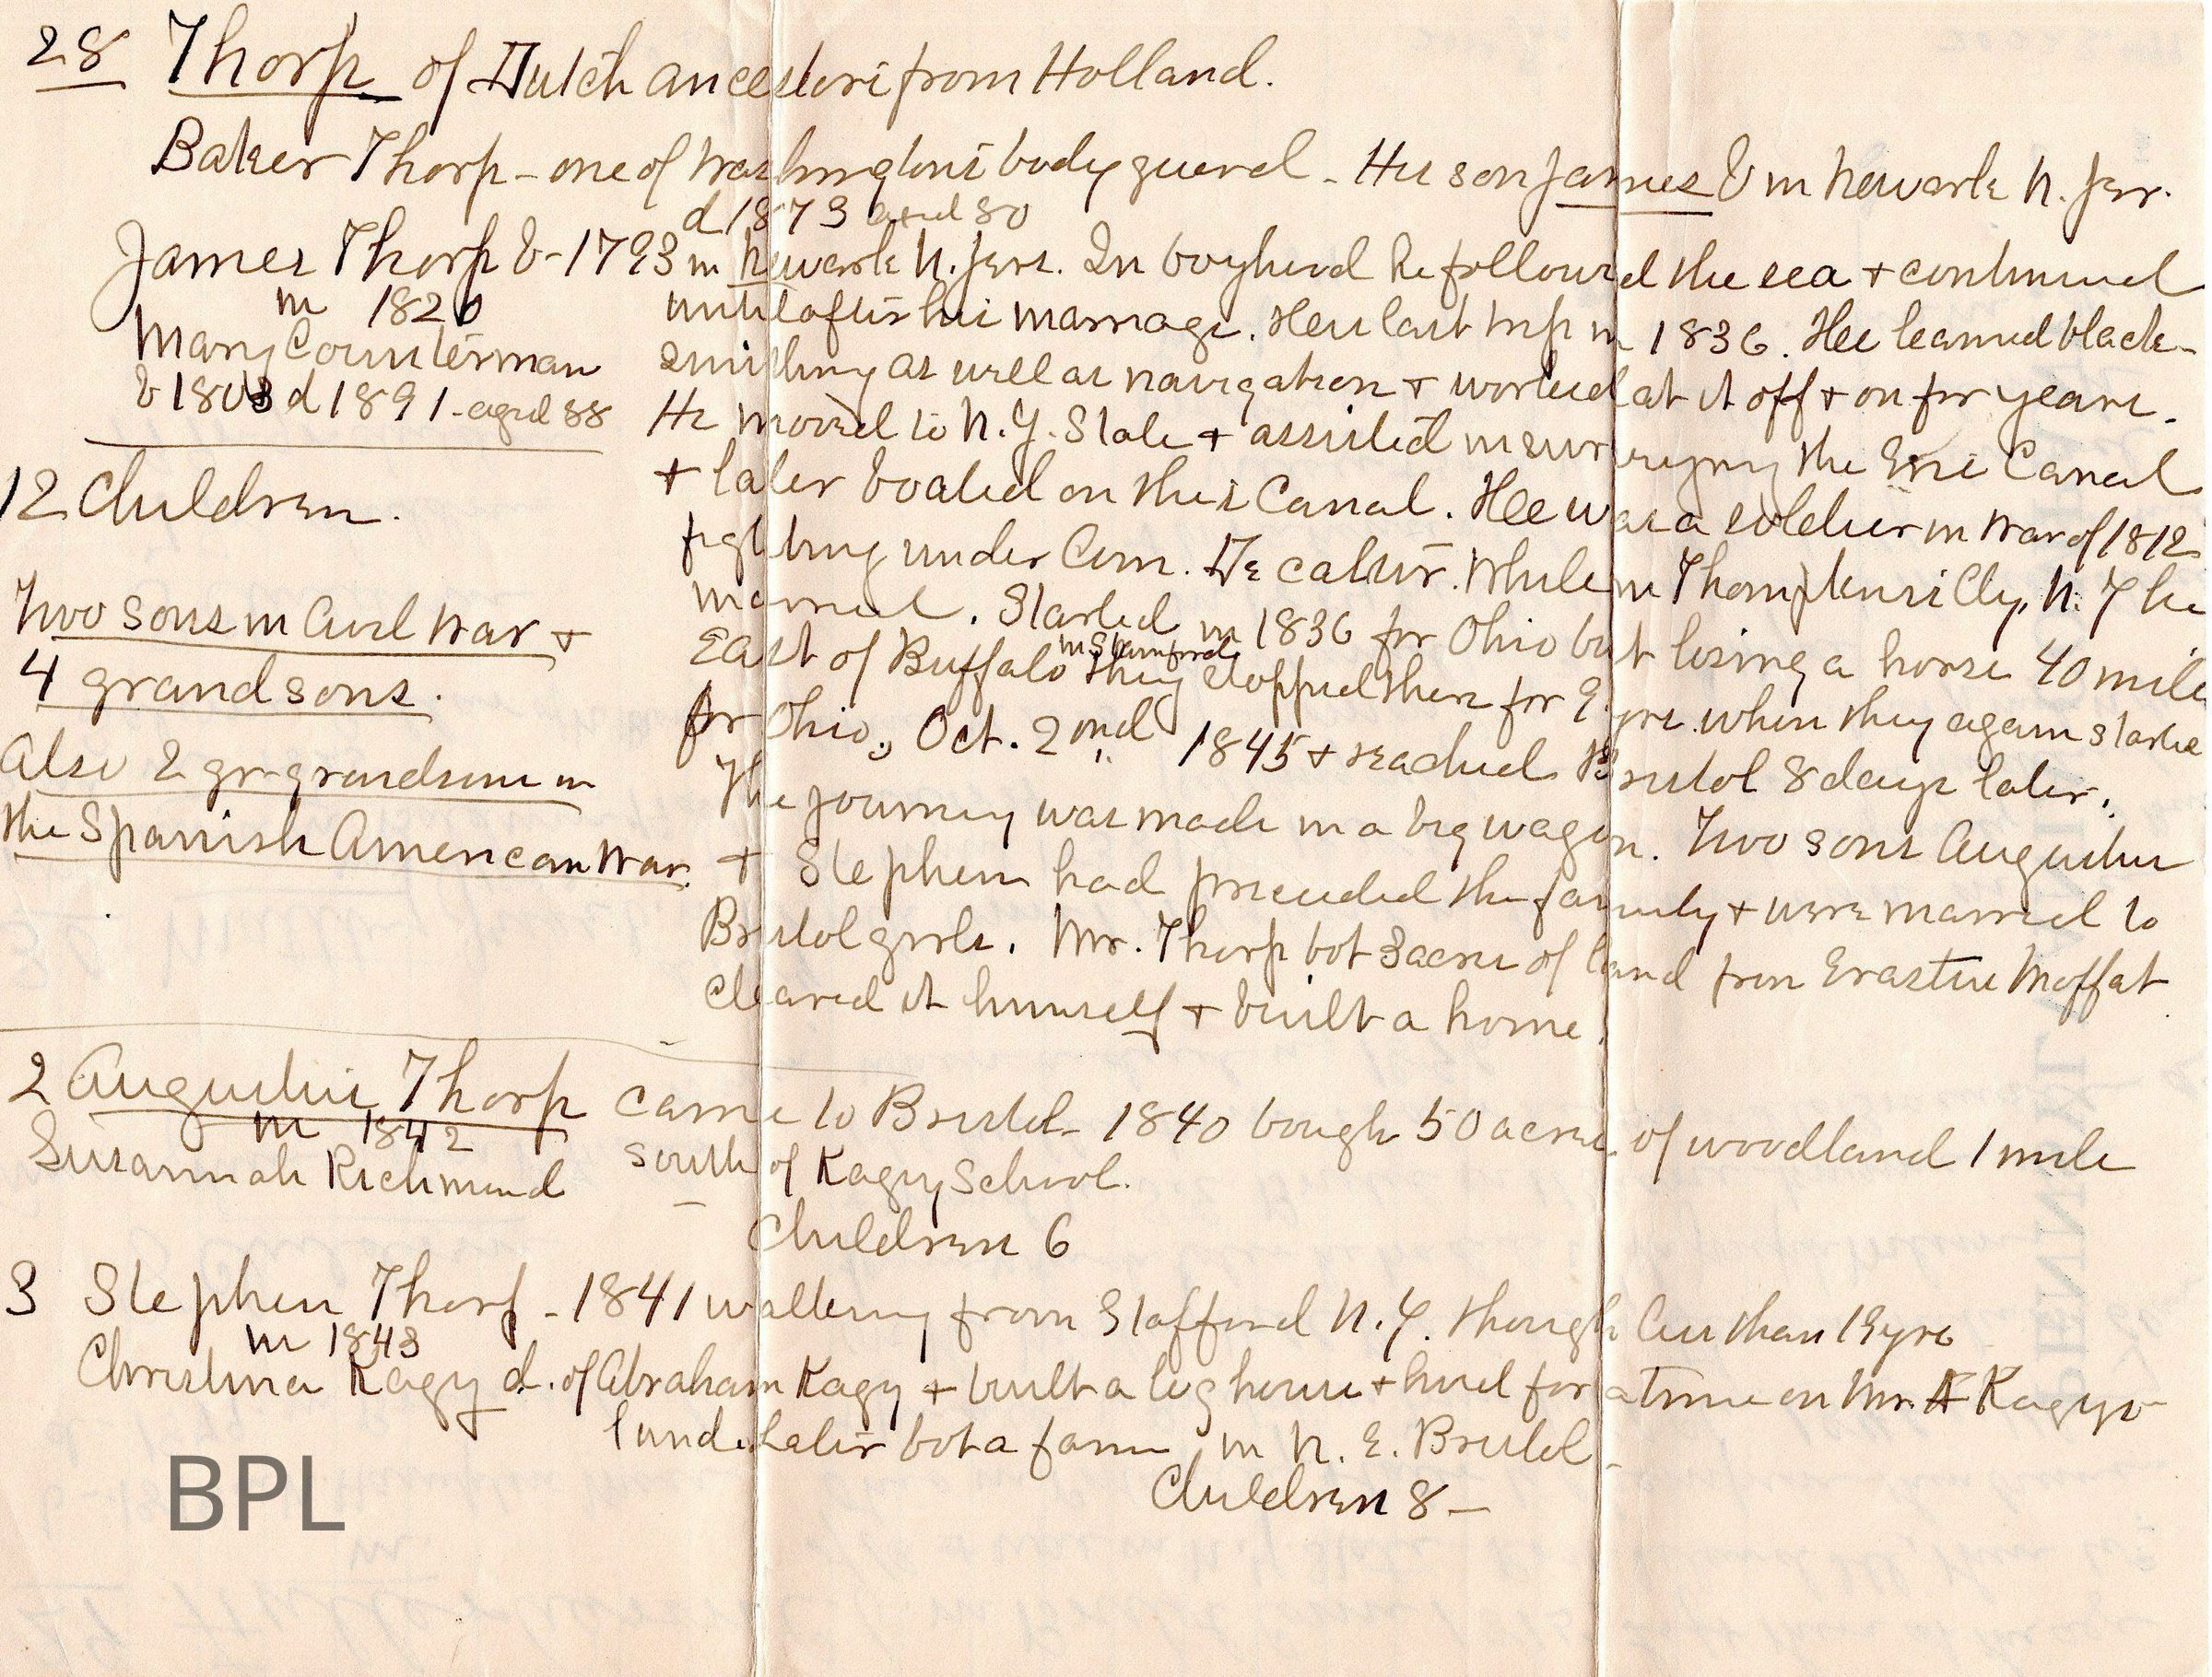 28 Thorp of Dutch ancestors from Holland.
Baker Thorp - one of Washingtons body guard - His son James b in Newark N. Jer.
d 1873 aged 80
James Thorp b - 1793 in Newark N. Jers. In boyhood he followed the sea + continued
m 1820
until after his marriage. His last trip in 1836. He learned black-
Mary Counterman
smithing as well as navigation + worked at it off + on for years.
b 1803 d 1891 - aged 88
He moved to N.Y. State + assisted in surveying the Erie Canal
12 Children.
+ later boated on this Canal. He was a soldier in War of 1812
fighting under Com. De catur. While in Thompkinsville, N. Y he
Two sons in Civil War +
married. Started in 1836 for Ohio but losing a horse 40 mile
4 grandsons.
East of Buffalo in Stamford they stopped there for 9 yrs. when they again started
for Ohio, Oct. 2nd 1845 + reached Bristol 8 days later.
Also 2 gr-grandsons in
The journey was made in a big wagon. Two sons Augustus
the Spanish American War.
+ Stephen had preceeded the family + were married to
Bristol girls. Mr. Thorp bot 3 acres of land from Erastus Moffat
cleared it himself + built a home.
2 Augustus Thorp came to Bristol - 1840 bough 50 acres of woodland 1 mile
m 1842
Susannah Richmond
south of Kagy School.
Children 6
3 Stephen Thorp - 1841 walking from Stafford N.Y. though less than 19 yrs
m 1843
Christina Kagy d. of Abraham Kagy + built a log house + lived for a time on Mr. A Kagys
land. Later bot a farm in N. E. Bristol -
Children 8 -
BPL